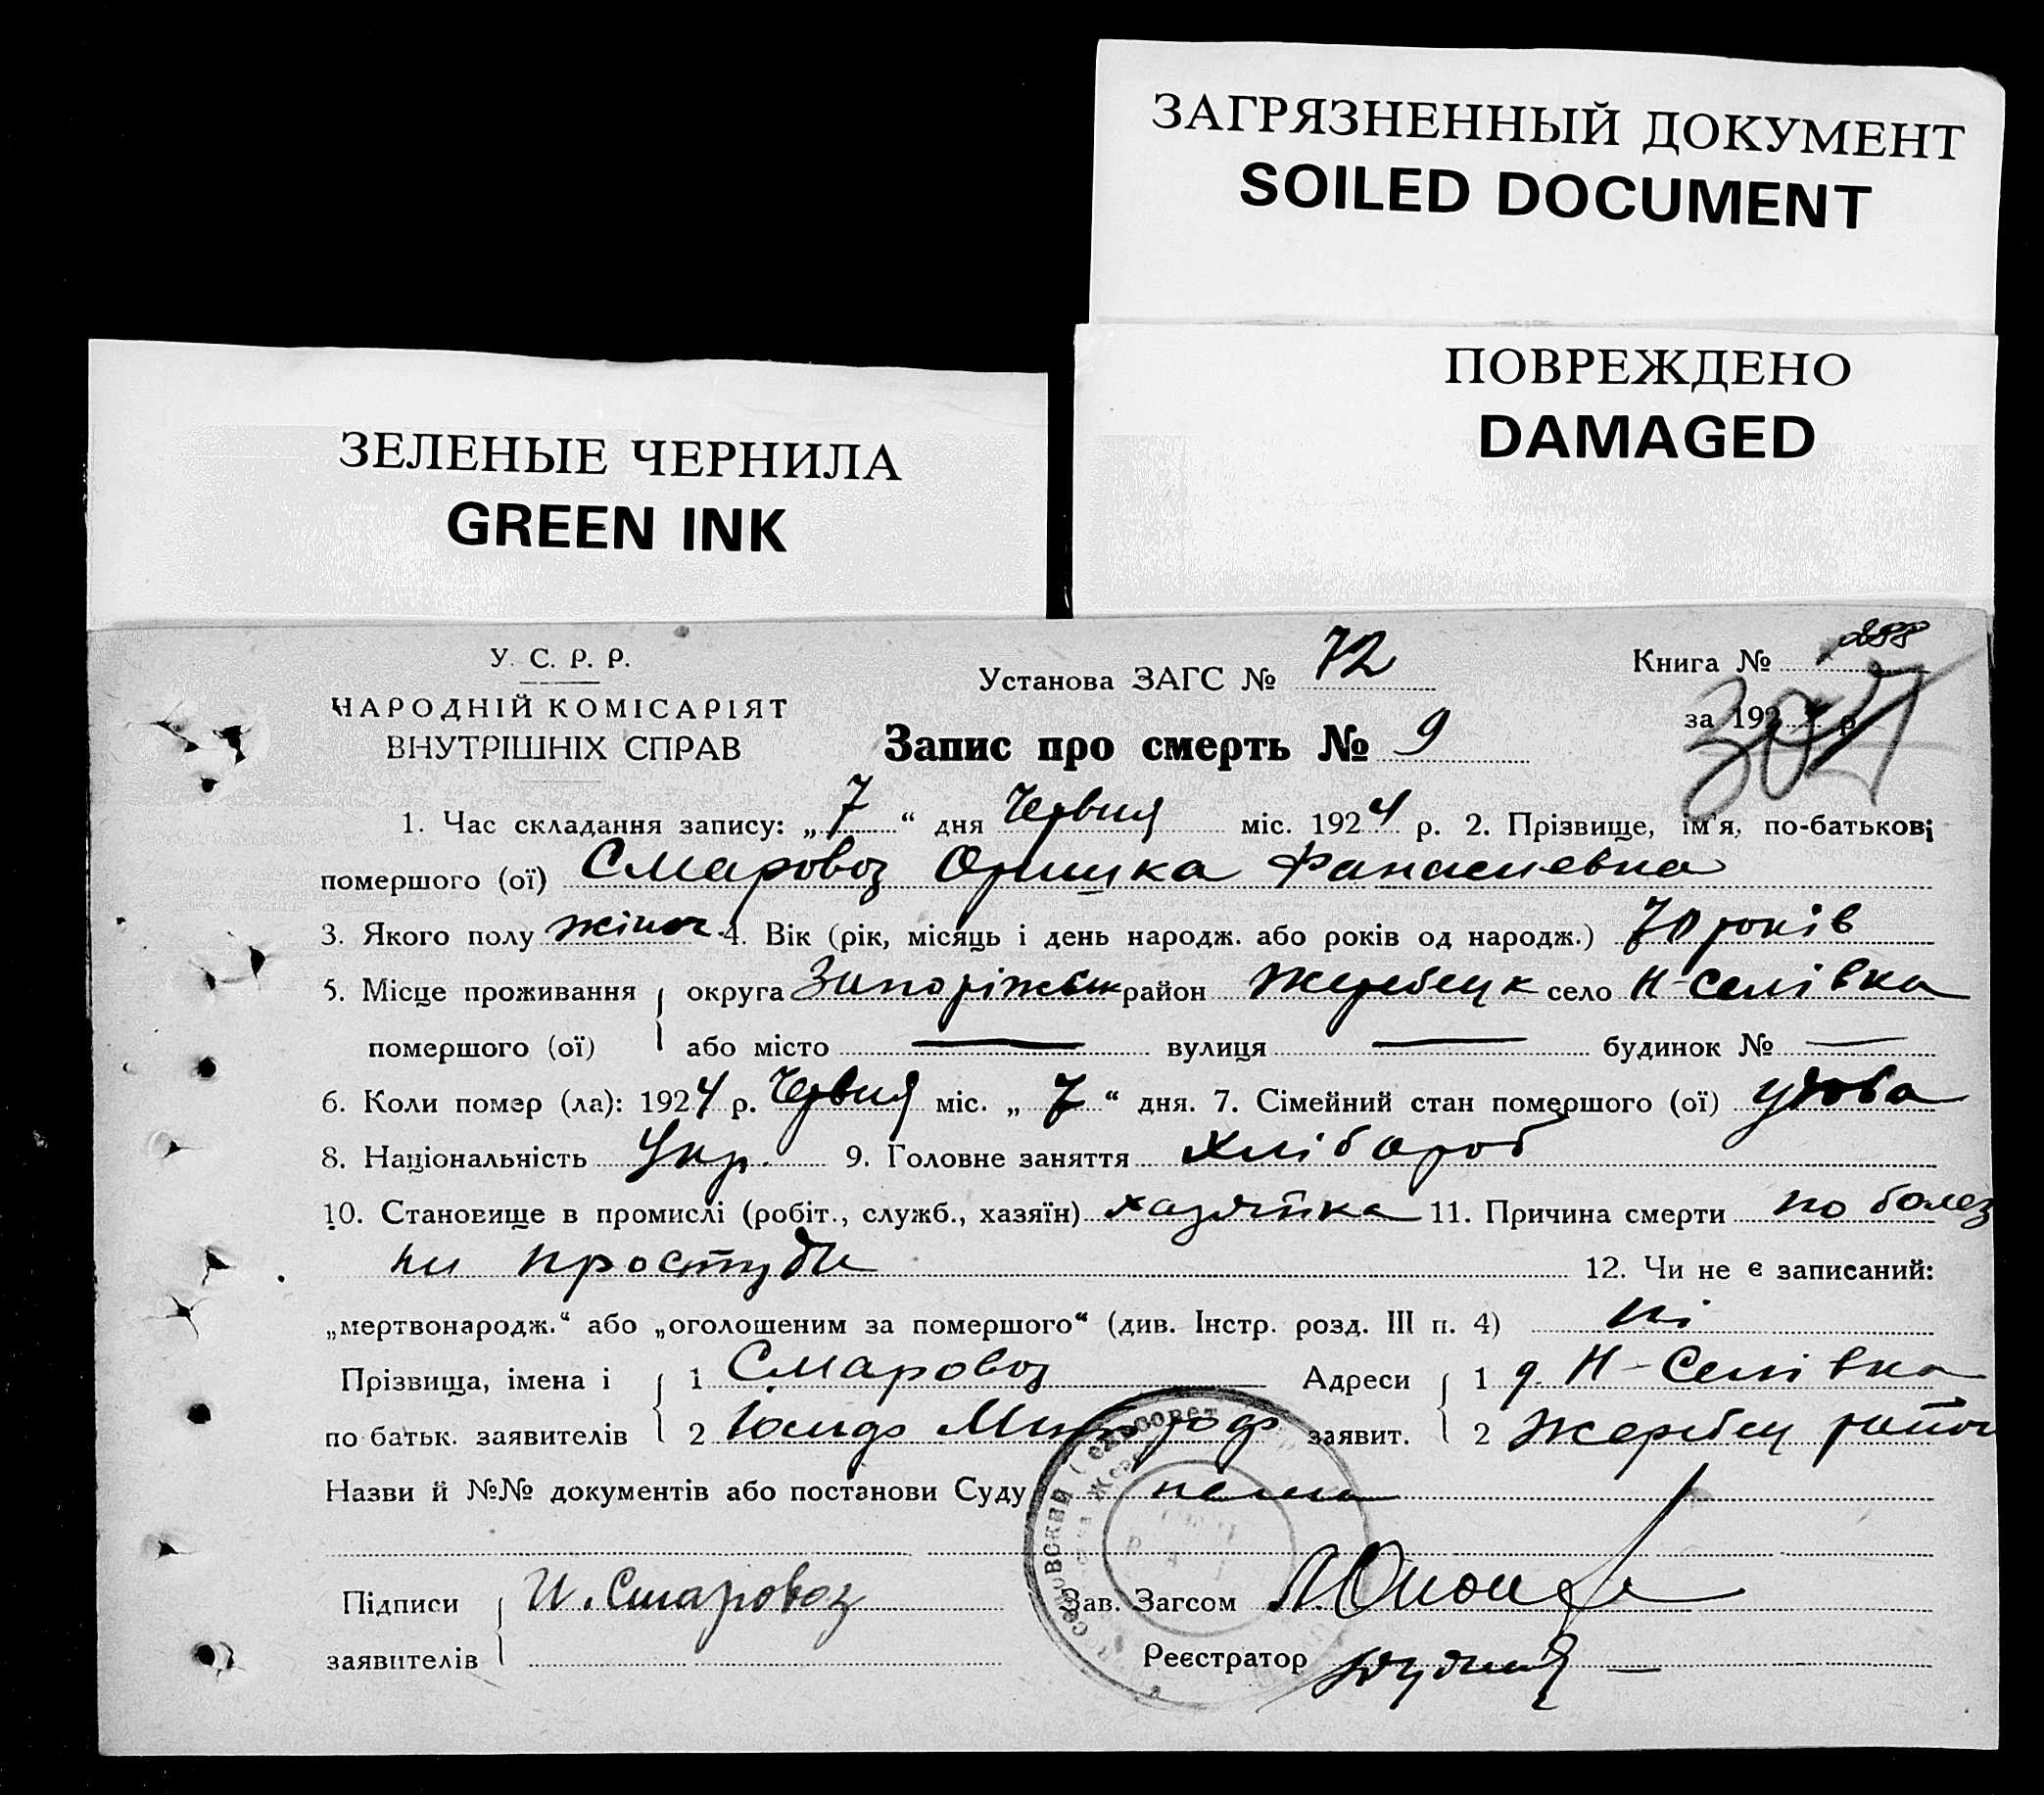 ЗАГРЯЗНЕННЫЙ ДОКУМЕНТ
SOILED DOCUMENT
ПОВРЕЖДЕНО
DAMAGED
ЗЕЛЕНЫЕ ЧЕРНИЛА
GREEN INK
У. С. Р. Р.
НАРОДНІЙ КОМІСАРІЯТ
ВНУТРІШНІХ СПРАВ
Установа ЗАГС № 72
Книга № 288
за 192 р.
Запис про смерть № 9
1. Час складання запису: „7“ дня Червня міс. 1924 р. 2. Прізвище, ім'я, по-батькові
помершого (ої) Смаровоз Оришка Фанасиевна
3. Якого полу жіноч. 4. Вік (рік, місяць і день народж. або років од народж.) 70 років
5. Місце проживання округа Запоріжськ район Жеребецк село Н-Селівка
помершого (ої) або місто — вулиця — будинок № —
6. Коли помер (ла): 1924 р. Червня міс. „7“ дня. 7. Сімейний стан помершого (ої) удова
8. Національність Укр. 9. Головне заняття Хлібороб
10. Становище в промислі (робіт., служб., хазяїн) хазяйка 11. Причина смерти по болез
ни простуди
12. Чи не є записаний:
„мертвонародж.“ або „оголошеним за помершого“ (див. Інстр. розд. III п. 4) ні
Прізвища, імена і 1 Смаровоз Адреси 1 д. Н-Селівка
по батьк. заявителів 2 заявит. 2 Жеребец район
Назви й №№ документів або постанови Суду нема
Підписи И. Смаровоз Зав. Загсом
заявителів Реєстратор